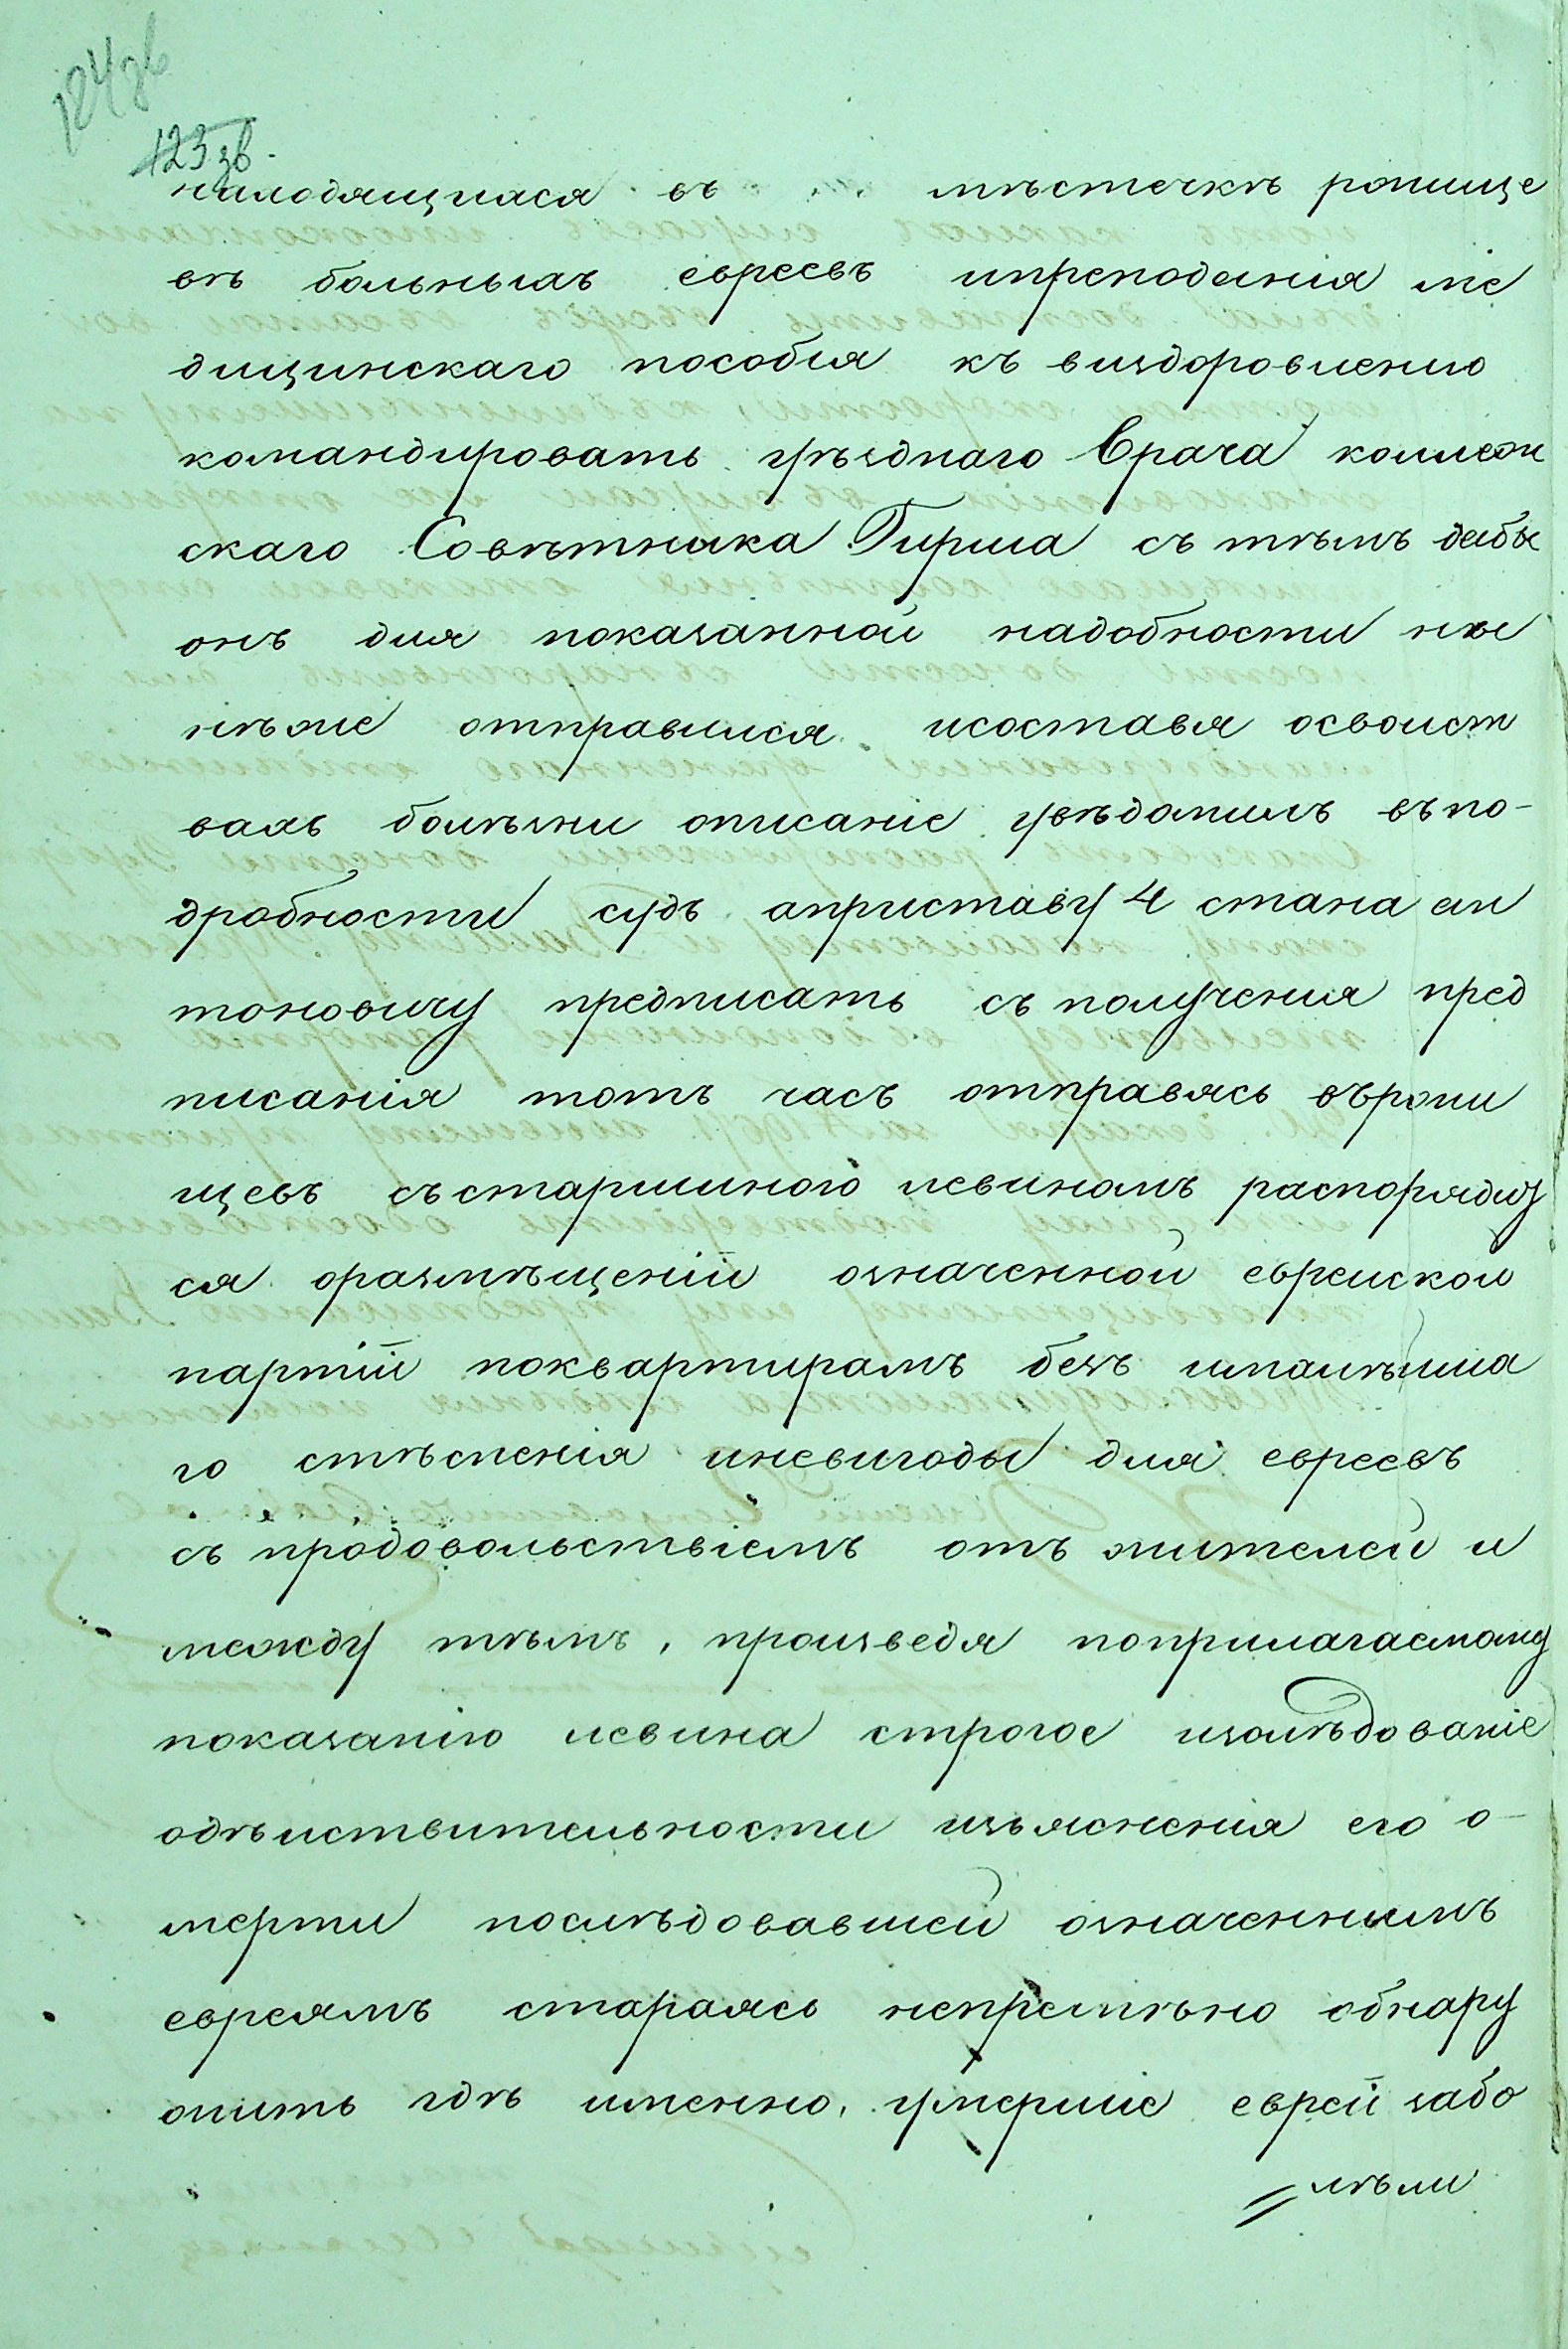 124зв
123зв.
находящихся въ мѣстечкѣ ропище
вѣ больныхъ евреевъ ипреподанія ме
дицинскаго пособія къ виздоровленію
командировать уѣзднаго Врача коллеж
скаго Совѣтника Гирша съ тѣмъ дабы
онъ для показанной надобности ны
нѣже отправился исоставя освоист
вахъ болѣзни описаніе увѣдомилъ въ по-
дробности судъ априставу 4 стана ан
тоновичу предписать съ полученія пред
писанія тотъ часъ отправясь въропи
щевъ състаршиною левиномъ распорядиу
ся оразмѣщеніи означенной еврейской
партіи поквартирамъ безъималѣйша
го стѣсненія иневигоды для евреевъ
съ продовольствіемъ отъ жителей и
между тѣмъ, произведя поприлагаемому
показанію левина строгое изслѣдованіе
одѣйствительности изъясненія его о
мерти послѣдовавшей означеннимъ
евреямъ стараясь непремѣно обнару
жить гдѣ именно, умершіе евреи забо
лѣли